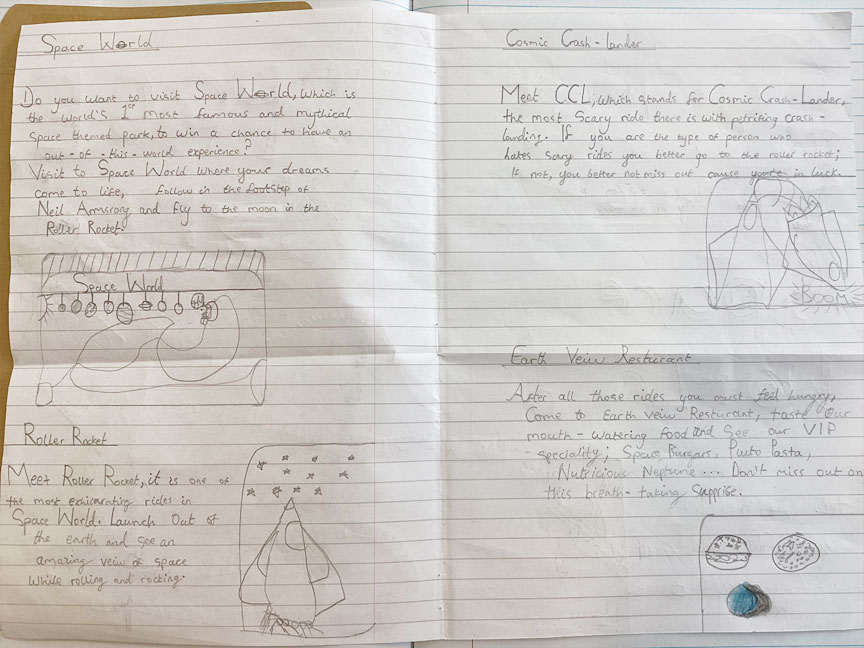 Space World
Do you want to visit Space World, Which is
the world's 1st most famous and mythical
Space themed park, to win a chance to have an
out-of-this-world experience?
Visit to Space World where your dreams
come to life, follow in the footstep of
Neil Armsrong and fly to the moon in the
Roller Rocket.
Space World
Roller Rocket
Meet Roller Rocket, it is one of
the most exhicarating rides in
Space World. Launch Out of
the earth and see an
amazing veiw of space
while rolling and rocking.
Cosmic Crash-lander
Meet CCL, which stands for Cosmic Crash-Lander,
the most Scary ride there is with petrifing crash-
landing. If you are the type of person who
hates scary rides you better go to the roller rocket;
If not, you better not miss out cause you're in luck.
BOOM
Earth Veiw Resturant
After all those rides you must feel hungry,
Come to Earth veiw Resturant, taste Our
mouth-watering food and See our VIP
speciality; Space Burgars, Pluto Pasta,
Nutricious Neptune... Don't miss out on
this breath-taking Supprise.